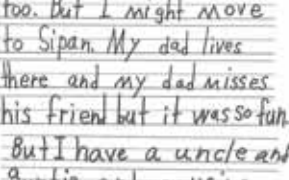 too. But I might move
to Sipan. My dad lives
there and my dad misses
his friend but it was so fun
But I have a uncle and